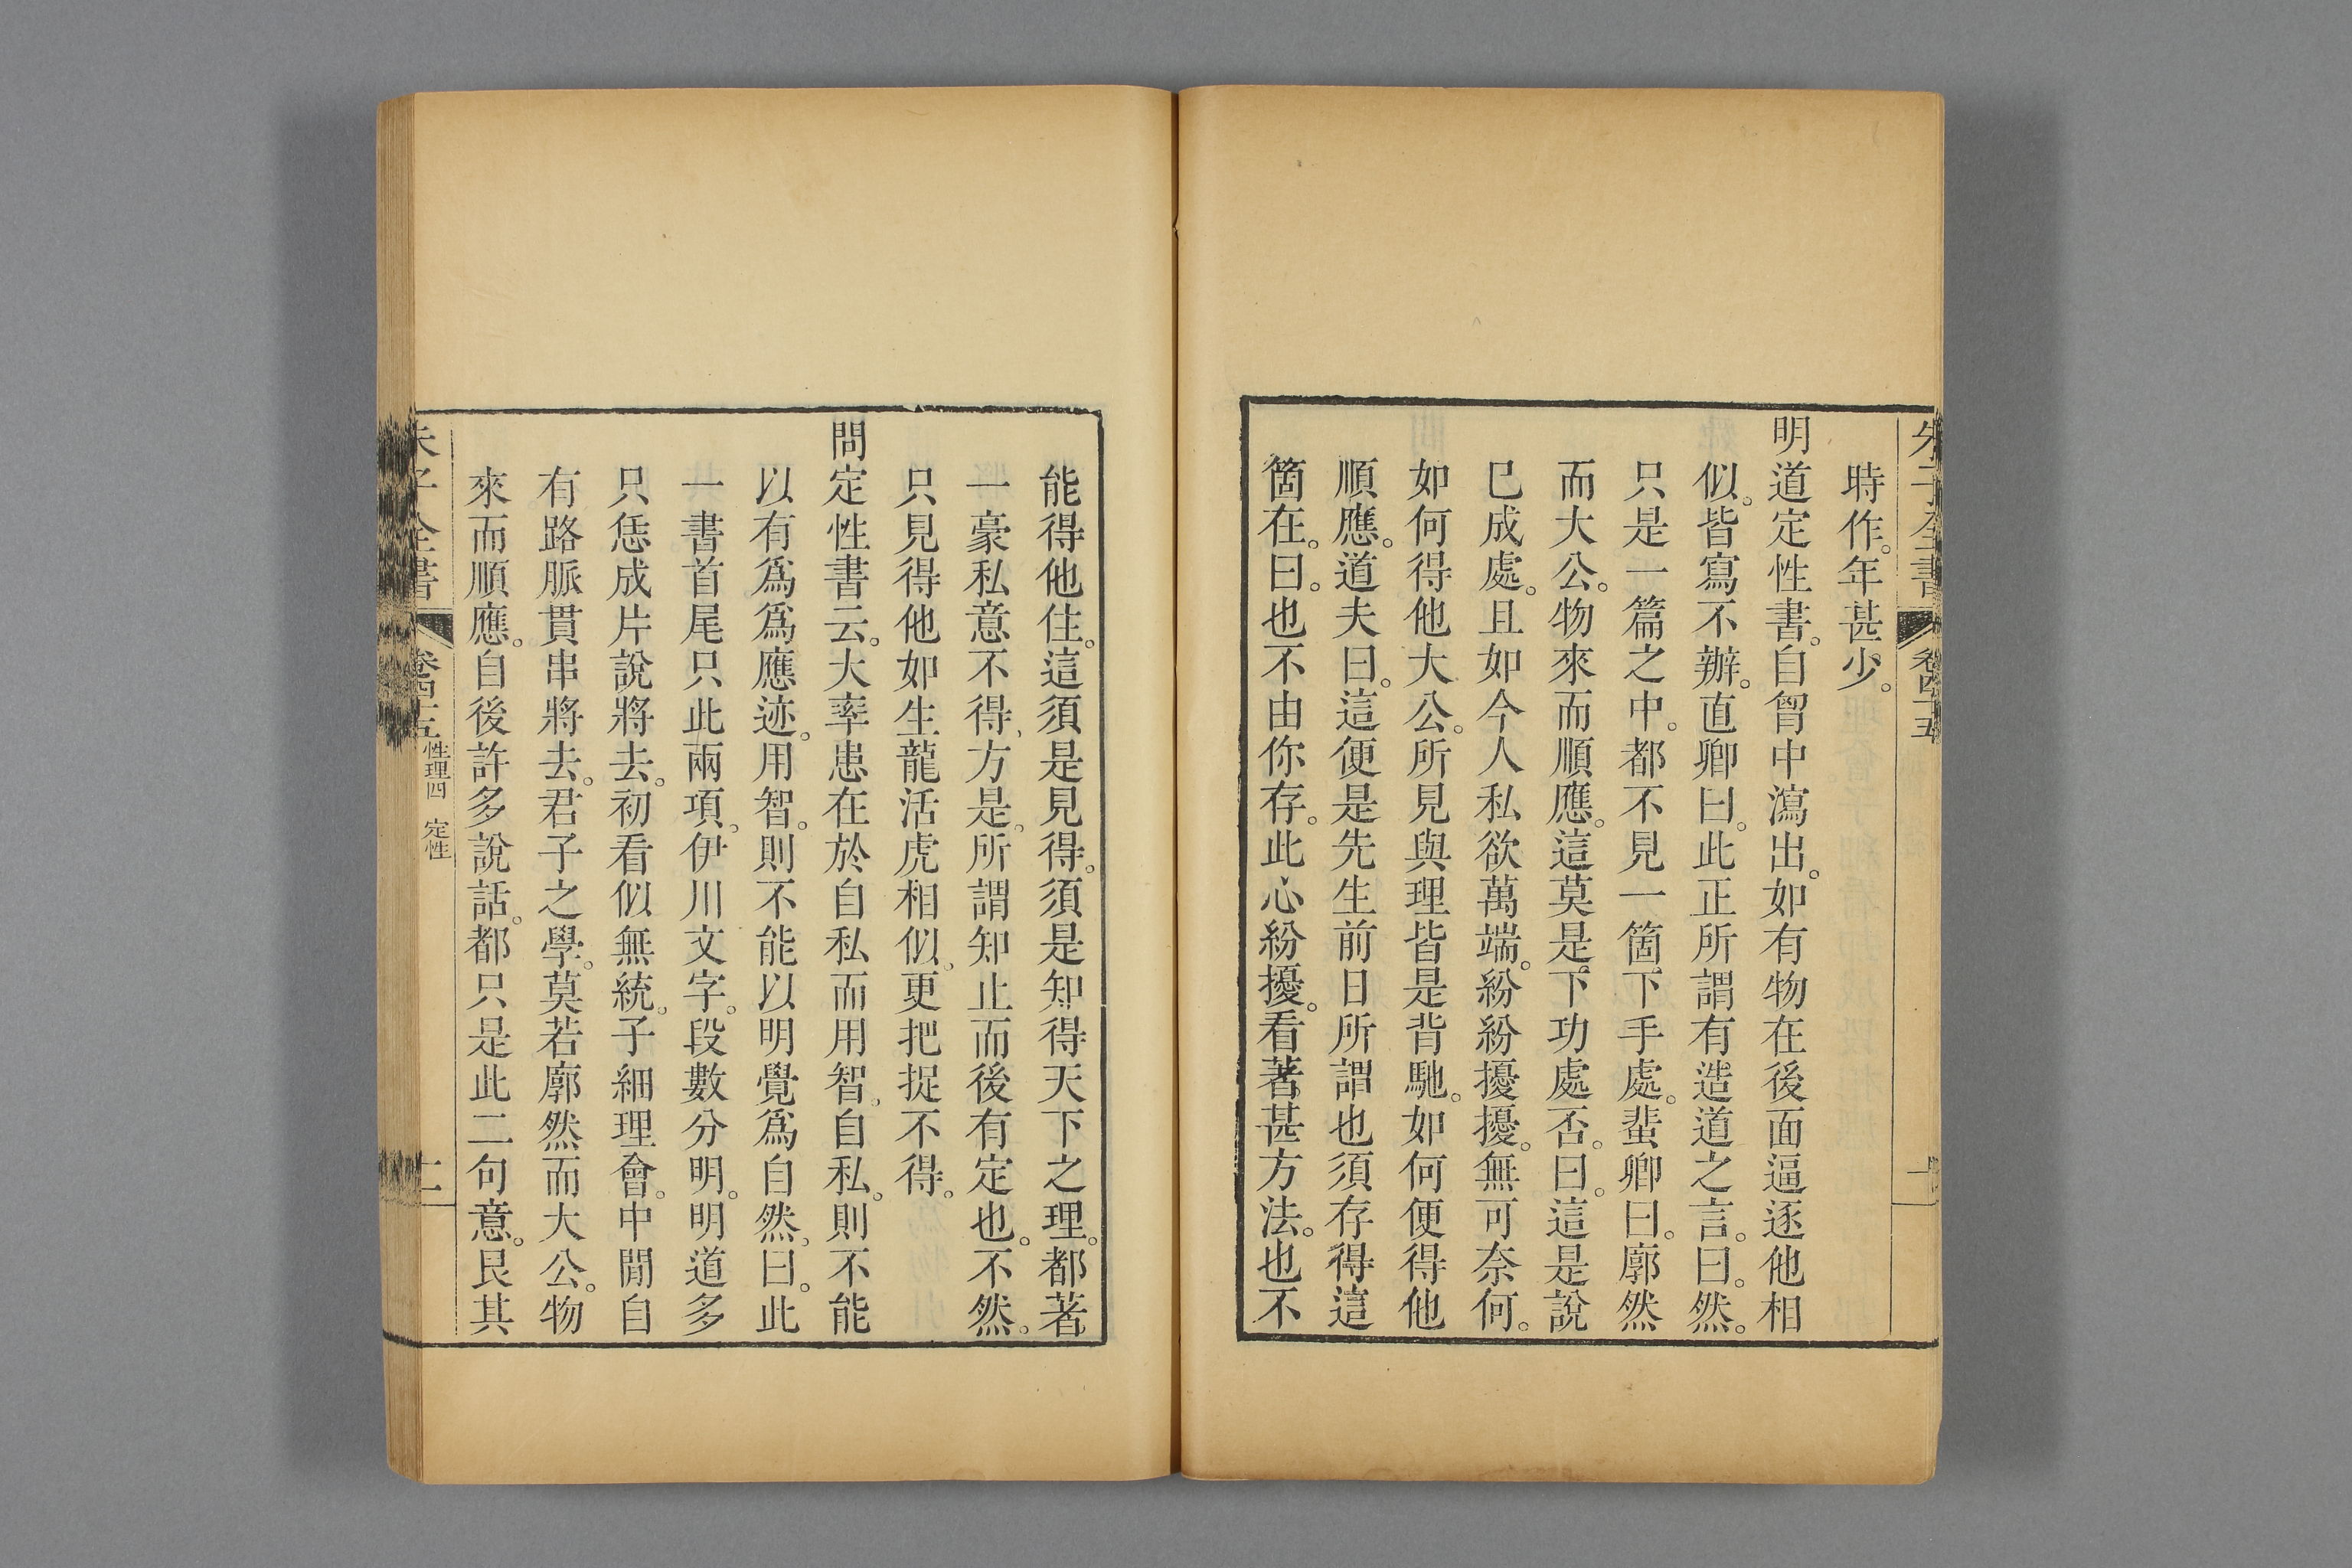 朱子全書 卷四十五 一
時作。年甚少。
明道定性書。自胷中瀉出。如有物在後面逼逐他相
似。皆寫不辦。直卿曰。此正所謂有造道之言。曰。然。
只是一篇之中。都不見一箇下手處。蜚卿曰。廓然
而大公。物來而順應。這莫是下功處否。曰。這是說
已成處。且如今人私欲萬端。紛紛擾擾。無可奈何。
如何得他大公。所見與理皆是背馳。如何便得他
順應。道夫曰。這便是先生前日所謂也須存得這
箇在。曰。也不由你存。此心紛擾。看著甚方法。也不
能得他住。這須是見得。須是知得天下之理。都著
一豪私意不得、方是。所謂知止而後有定也。不然。
只見得他如生龍活虎相似。更把捉不得。
問定性書云。大率患在於自私而用智。自私。則不能
以有爲爲應迹。用智。則不能以明覺爲自然。曰。此
一書首尾只此兩項。伊川文字。段數分明。明道多
只恁成片說將去。初看似無統。子細理會。中閒自
有路脈貫串將去。君子之學。莫若廓然而大公。物
來而順應。自後許多說話。都只是此二句意。艮其
朱子全書 卷四十五 性理四 定性 二